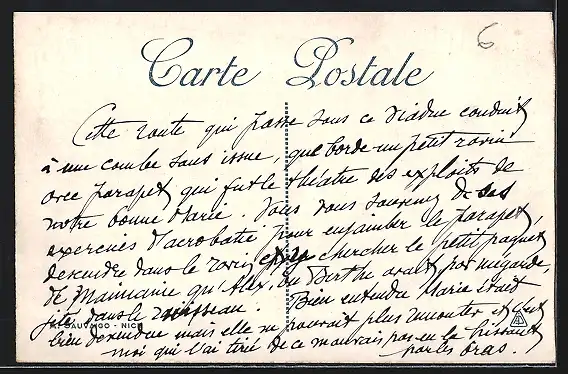 6
Carte Postale
Cette route qui passe sous ce viaduc conduit
à une combe sans issue, que borde un petit ravin
avec parapet qui fut le théâtre des exploits de
notre bonne Marie. Vous vous souvenez de ses
exercices d'acrobatie pour enjamber le parapet,
descendre dans le ravin et y chercher le petit paquet
de Mainanie qu'Alex, ou Berthe avait par mégarde,
jeté dans le ruisseau. Bien entendu Marie était
bien descendue mais elle ne pouvait plus remonter et c'est
moi qui l'ai tiré de ce mauvais pas en la hissant
par les bras.
GAUVAIGO - NICE